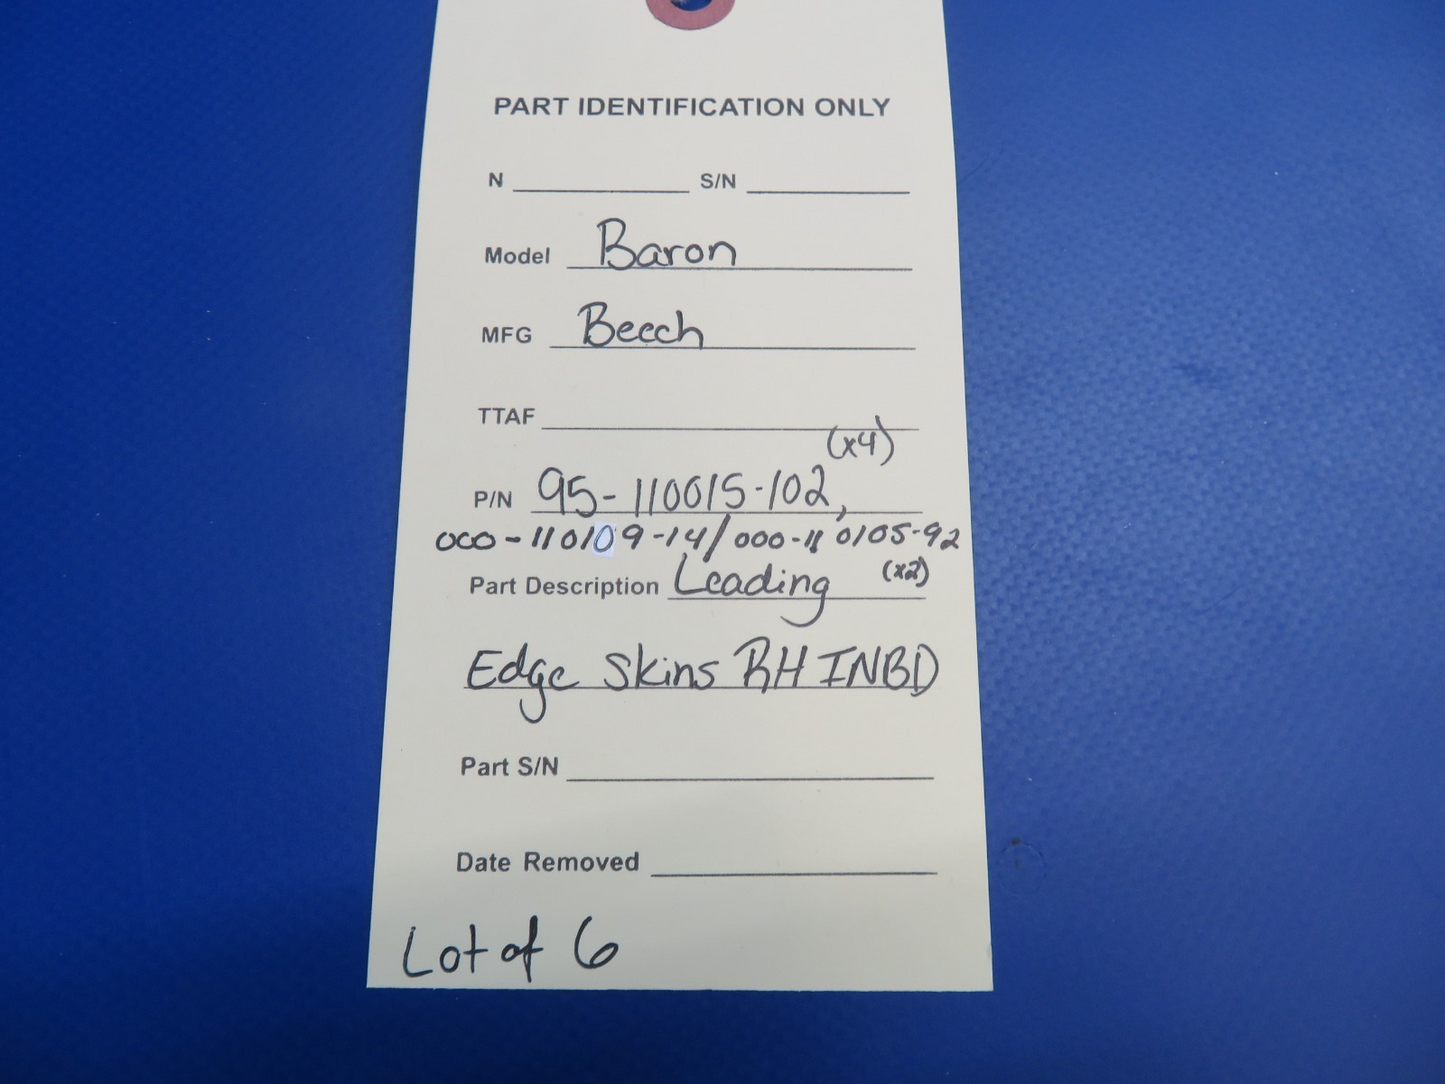 PART IDENTIFICATION ONLY
N S/N
Model Baron
MFG Beech
TTAF
(x4)
P/N 95-110015-102,
000-110109-14/000-110105-92
Part Description Leading (x2)
Edge Skins RH INBD
Part S/N
Date Removed
Lot of 6